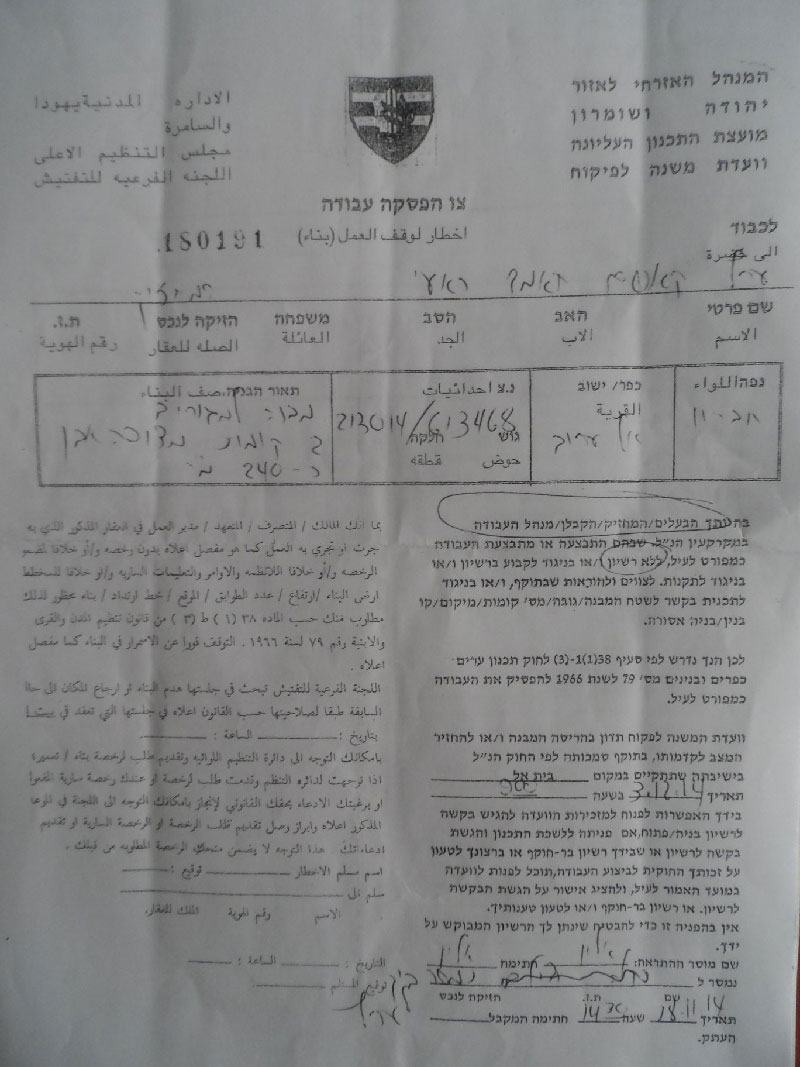 המנהל האזרחי לאזור
יהודה ושומרון
מועצת התכנון העליונה
וועדת משנה לפיקוח
الاداره المدنية يهودا
والسامرة
مجلس التنظيم الاعلى
اللجنه الفرعيه للتفتيش
צו הפסקה עבודה
اخطار لوقف العمل (بناء)
180191
לכבוד
الى حضرة
שם פרטי האב הסב משפחה הזיקה לנכס ת.ז.
الاسم الاب الجد. العائلة الصله للعقار رقم الهوية
נפה اللواء כפר/ ישוב القرية נ.צ احداثيات תאור הבניה. صف البناء
חברון
213014/613468
גוש חלקה
حوض قطعه
מבנה למגורים
2 קומות
כ-240 מ'
בהיותך הבעלים/המחזיק/הקבלן/מנהל העבודה
במקרקעין הנ"ל, שבהם התבצעה או מתבצעת העבודה
כמפורט לעיל, ללא רשיון/ או בניגוד לקבוע ברשיון ו/או
בניגוד לתקנות. לצווים ולהוראות שבתוקף, ו/או בניגוד
לתכנית בקשר לשטח המבנה/גובה/מס' קומות/מיקום/קו
בנין/בניה אסורה.
לכן הנך נדרש לפי סעיף 38(1)-(3) לחוק תכנון ערים
כפרים ובנינים מס' 79 לשנת 1966 להפסיק את העבודה
כמפורט לעיל.
וועדת המשנה לפקוח תדון בהריסת המבנה ו/או להחזיר
המצב לקדמותו, בתוקף סמכותה לפי החוק הנ"ל
בישיבתה שתתקיים במקום בית אל
תאריך 3.12.14 בשעה 900
בידך האפשרות לפנות למזכירות הוועדה להגיש בקשה
לרשיון בניה/פתוח, אם פניתה ללשכת התכנון והגשת
בקשה לרשיון או שבידך רשיון בר-תוקף או ברצונך לטעון
על זכותך החוקית לביצוע העבודה, תוכל לפנות לוועדה
במועד האמור לעיל, ולהציג אישור על הגשת הבקשה
לרשיון. או רשיון בר-תוקף ו/או לטעון טענותיך.
אין בהפניה זו כדי להבטיח שינתן לך הרשיון המבוקש על
ידך.
שם מוסר ההתראה: חתימה
נמסר ל
שם ת.ז. הזיקה לנכס
תאריך 18.11.14 שעה 1430 חתימה המקבל
העתק.
بما انك المالك / المتصرف / المتعهد / مدير العمل في العقار المذكور الذي به
جرت او تجري به العمل كما هو مفصل اعلاه بدون رخصه و/أو خلافا
الرخصه و/أو خلافا للانظمه والاوامر والتعليمات الساريه و/او خلافا للمخطط
ارض البناء /ارتفاع / عدد الطوابق / الموقع / خط ارتداد / بناء محظور لذلك
مطلوب منك حسب الماده ٣٨ (١) ط (٣) من قانون تنظيم المدن والقرى
والابنية رقم ٧٩ لسنة ١٩٦٦. التوقف فورا عن الاستمرار في البناء كما مفصل
اعلاه .
اللجنة الفرعية للتفتيش تبحث في جلستها هدم البناء او ارجاع المكان الى
السابقة طبقا لصلاحيتها حسب القانون اعلاه في جلستها التي تعقد في
بتاريخ : الساعة :
بامكانك التوجه الى دائرة التنظيم اللوائيه وتقديم طلب لرخصة بناء /
اذا توجهت لدائره التنظيم وقدمت طلب لرخصة او عندك رخصة سارية المفعول
او برغبتك الادعاء بحقك القانوني لإنجاز بامكانك التوجه الى اللجنة في
المذكور اعلاه وابراز وصل تقديم طلب الرخصة او الرخصة السارية او تقديم
ادعاءاتك . هذا التوجه لا يضمن منحك الرخصة المطلوبه من قبلك .
اسم مسلم الاخطار توقيع :
سلم الى
الاسم رقم الهوية
التاريخ : الساعة :
توقيع